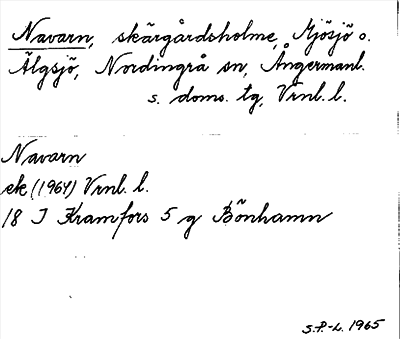 Navarn, skärgårdsholme, Mjösjö o.
Älgsjö, Nordingrå sn, Ångermanl.
s. doms. tg, Vrnl. l.
Navarn
ek (1964) Vrnl. l.
18 I Kramfors 5 g Bönhamn
S.P.-L. 1965